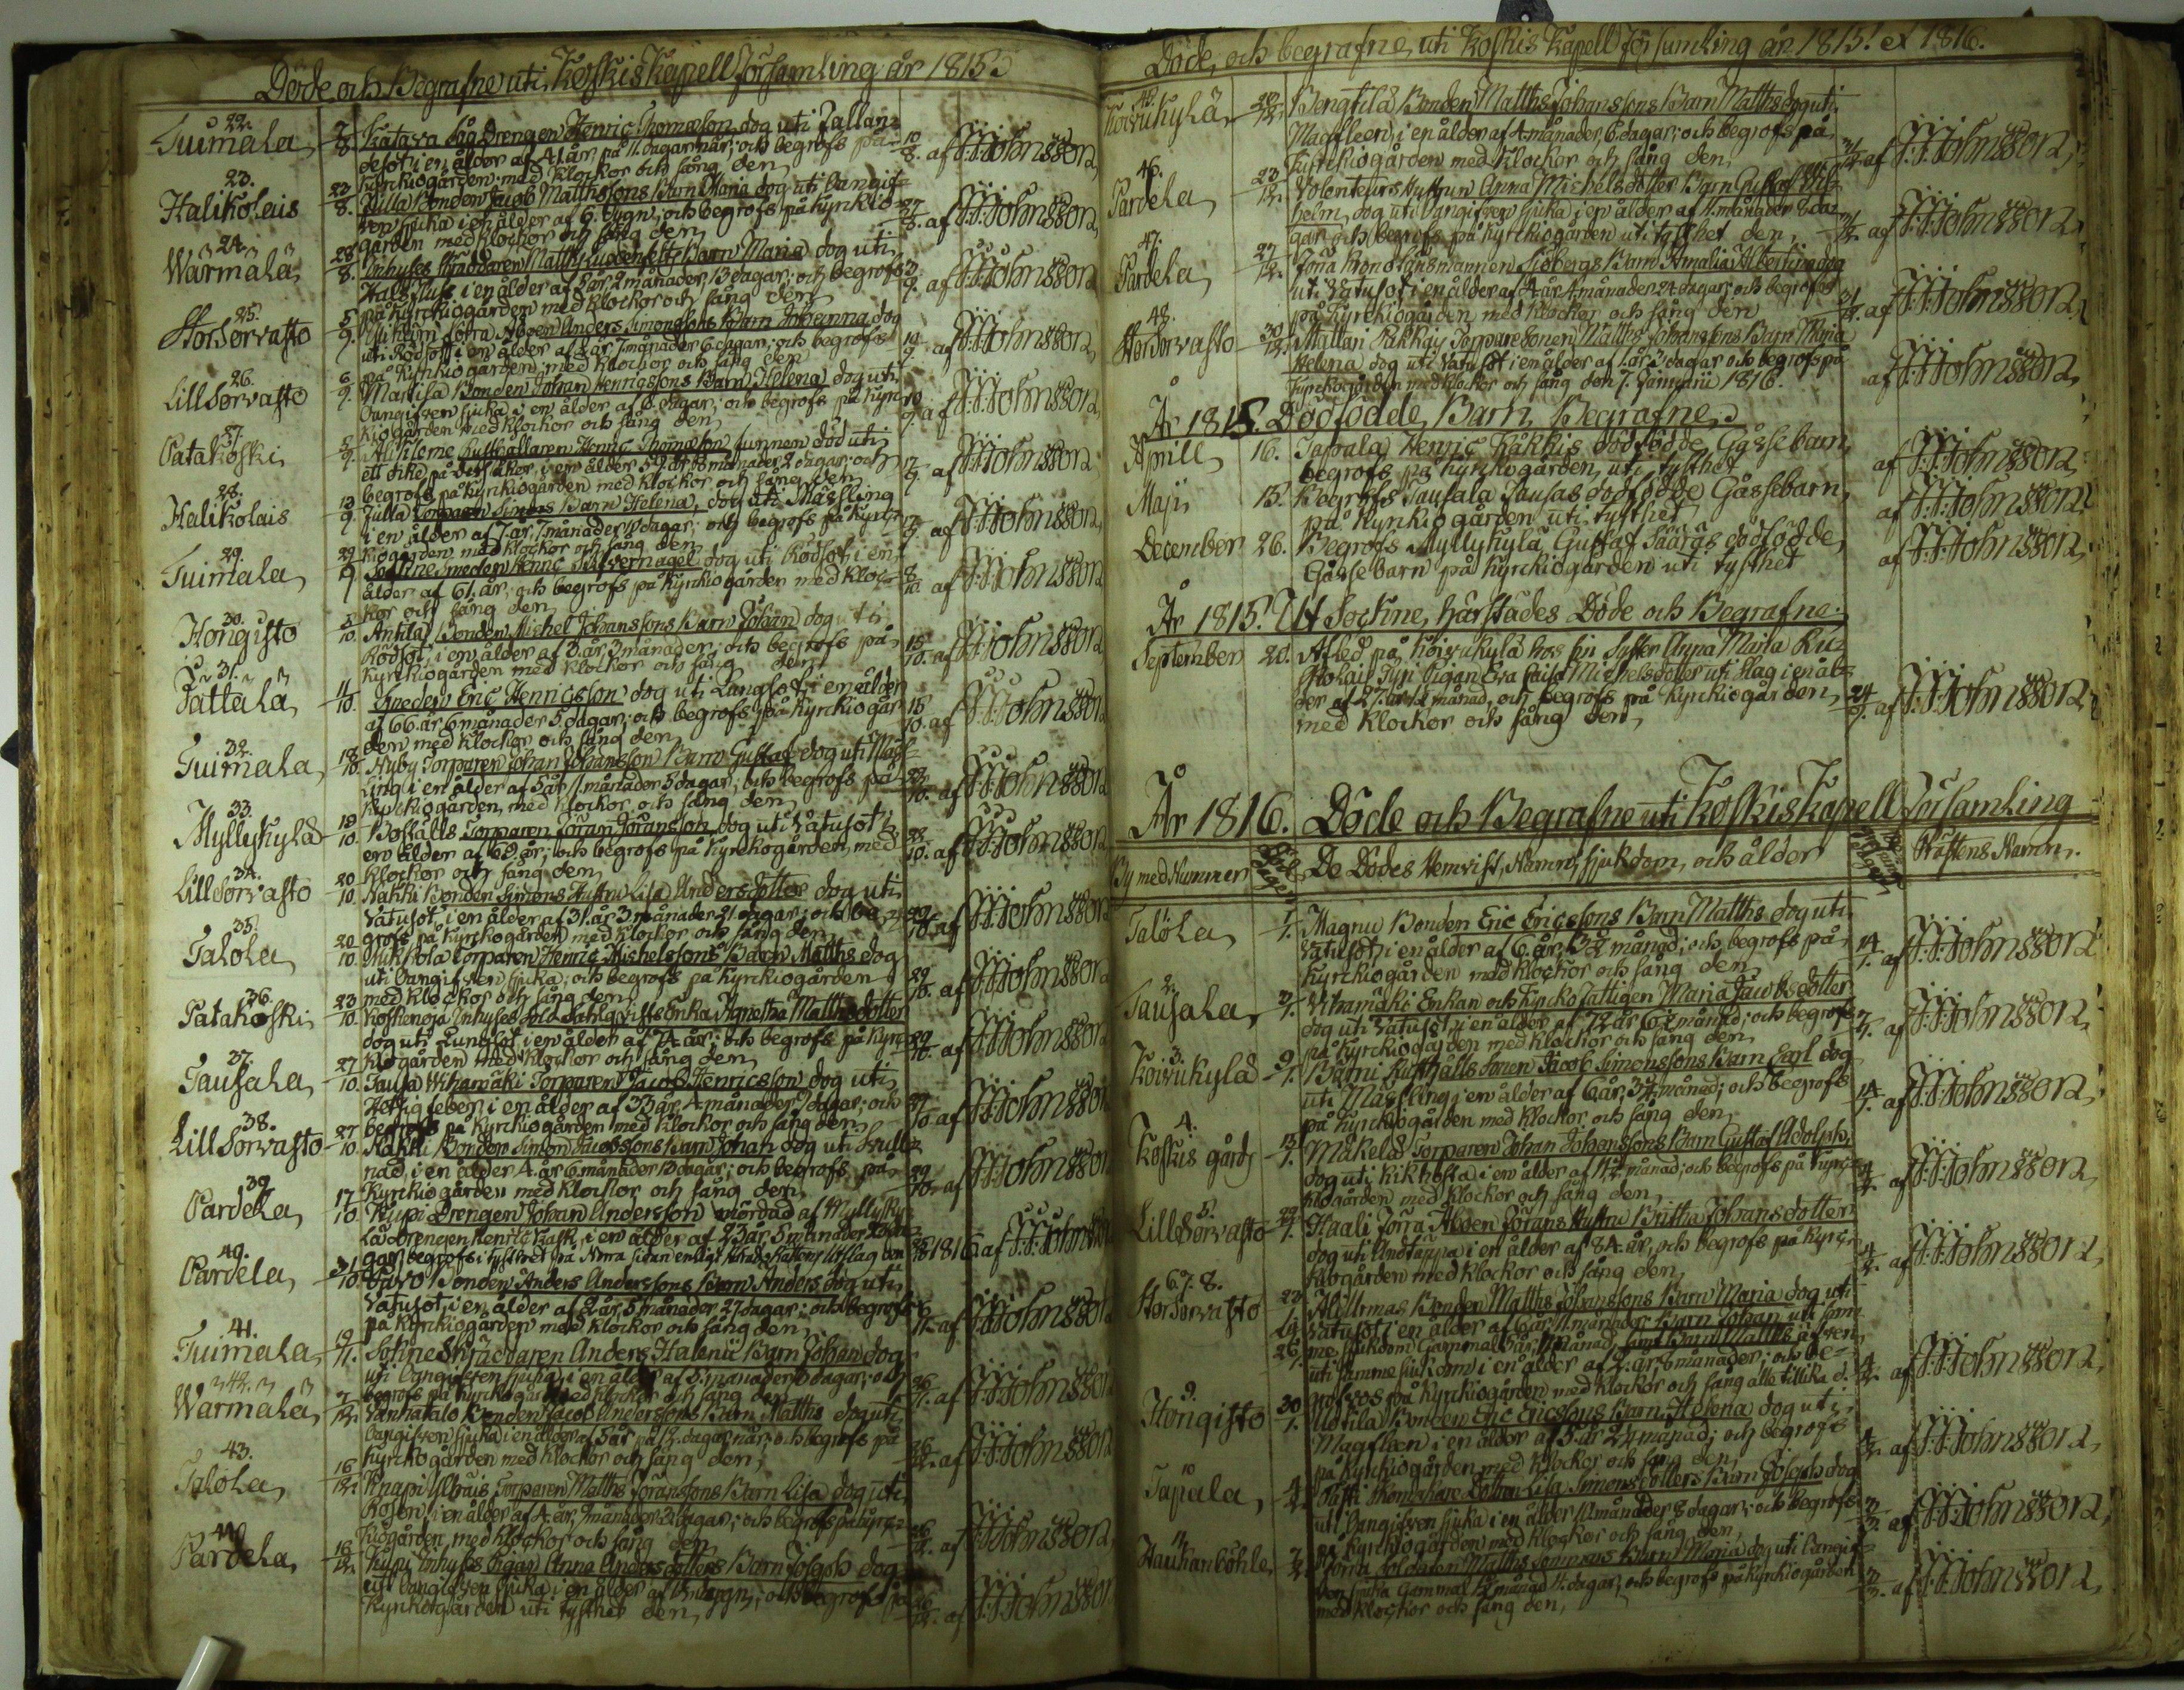 Döde och Begrafne uti Koskis Kapell Församling år 1815.
22.
Tuimala 7/8. Katava Såg Drengen Henric Thomæson dog uti Fallan-
desot i en ålder af 41. år på 11. dagar när; och begrofs på 10/8. af J:J:Johnsson
Kyrckiogården med Klockor och sång den
23.
Halikolais 23/8. Jullla Bonden Jacob Matthssons Barn Maria dog uti oangif-
ven sjuka i en ålder af 6. dygn; och begrofs på Kyrckio- 27/8. af J:J:Johnsson
gården med Klockor och sång den
24.
Wärmälä 28/8. Inhyses Skräddaren Matths Barn Maria dog uti
i en ålder af 5 år, 2 månader, 13 dagar; och begrofs 3/9. af J:J:Johnsson
på Kyrckiogården med Klockor och sång den
25.
StorSorvasto 5/9. Åboen Anders Simonssons Barn Johanna dog
uti Rödsot i en ålder af 8 år 7 månader 6 dagar; och begrofs 10/9. af J:J:Johnsson
på Kyrckiogården med Klockor och sång den
26.
LillSorvasto 6/9. Martila Bonden Johan Henricssons Barn Helena dog uti
oangifven sjuka i en ålder af 6. dagar; och begrofs på Kyrc- 10/9. af J:J:Johnsson
kiogården med Klockor och sång den
27.
Patakoski 8/9. Husthållaren Henric Thomæson funnen död uti
ett dike på dess åker, i en ålder 59 år 8 månader 2 dagar; och 17/9. af J:J:Johnsson
begrofs på Kyrckiogården med Klockor och sång den
28.
Halikolais 13/9. Jullla Torparen Simons Barn Helena, dog uti Mässling
i en ålder af 7. år, 7 månader dagar; och begrofs på Kyrc- 17/9. af J:J:Johnsson
kiogården med Klockor och sång den
29.
Tuimala 29/9. Sockne Smeden Henric Silfvernagel dog uti Rödsot, i en
ålder af 61. år; och begrofs på Kyrckiogården med Kloc- 8/10. af J:J:Johnsson
kor och sång den
30.
Hongisto 5/10. Anttila Bonden Michel Johanssons Barn Johan dog uti
Rödsot, i en ålder af 3. år 3 månader; och begrofs på 15/10. af J:J:Johnsson
Kyrckiogården med Klockor och sång den
31.
Tättälä 11/10. Smeden Eric Henricsson dog uti Lungsot, i en ålder
af 66 år 6 månader 5 dagar; och begrofs på Kyrckiogår- 15/10. af J:J:Johnsson
den med Klockor och sång den
32.
Tuimala 18/10. Nyby Torparen Johan Johansson Barn Gustaf dog uti Mäss-
ling i en ålder af 5 år 11. månader 5 dagar; och begrofs på 22/10. af J:J:Johnsson
Kyrckiogården med Klockor och sång den
33.
Myllykylä 19/10. Boställs Torparen Göran Göransson dog uti Vatusot i
en ålder af 69. år; och begrofs på Kyrckogården med 22/10. af J:J:Johnsson
Klockor och sång den
34.
LillSorvasto 20/10. Nakki Bonden Simons Hustru Lisa Andersdotter dog uti
Vatusot, i en ålder af 31. år 3 månader 21 dagar; och be- 29/10. af J:J:Johnsson
grofs på Kyrckogården med Klockor och sång den
35.
Talola 20/10. Mikkola Torparen Henric Michelssons Barn Matths dog
uti oangifven sjuka; och begrofs på Kyrckiogården 29/10. af J:J:Johnsson
med Klockor och sång den
36.
Patakoski 23/10. Koskenoja Inhyses Sold. Dahlqvists Enka Agnetha Matthsdotter
dog uti Lungsot, i en ålder af 74 år; och begrofs på Kyrc- 29/10. af J:J:Johnsson
kiogården med Klockor och sång den
37.
Tausala 27/10. Tausa Vihamäki Torparen Jacob Henricsson dog uti
Hettig feber i en ålder af 33 år, 4 månader dagar; och af J:J:Johnsson
begrofs på Kyrckiogården med Klockor och sång den
38.
LillSorvasto 27/10. Nakki Bonden Simon Jacobssons Barn Johan dog uti
i en ålder 4. år 6 månader 13 dagar; och begrofs på 29/10. af J:J:Johnsson
Kyrckiogården med Klockor och sång den
39.
Pardela 17/10. Kupi Drengen Johan Andersson mördad af Myllyky-
lä Drengen Henric Kask, i en ålder af 23 år, 5 månader
gar, begrofs i tysthet på Norra sidan enligt HäradsRättens utslag den 1816 af J:J:Johnsson
40.
Pardela 31/10. Bonden Anders Anderssons Barn Anders dog uti
Vatusot, i en ålder af 2 år, 5 månader 27 dagar; och begrofs af J:J:Johnsson
på Kyrckiogården med Klockor och sång den
41.
Tuimala 19/11. Sockne Skräddaren Anders Halenii Barn Johan dog
uti oangifven sjuka, i en ålder af 3. månader dagar; och 26/11. af J:J:Johnsson
begrofs på Kyrckiogården med Klockor och sång den
42.
Wärmälä 7/12. Vanhatalo Bonden Jacob Anderssons Barn Matths dog uti
oangifven sjuka i en ålder af 5 år på 12. dagar när; och begrofs på af J:J:Johnsson
Kyrckogården med Klockor och sång den;
43.
Talola 16/12. Knapi Torparen Matths Göranssons Barn Lisa dog uti
Rosen, i en ålder af 4. år, månader dagar; och begrofs på Kyrc- 26/12. af J:J:Johnsson
kiogården med Klockor och sång den
44.
Pardela 18/12. Kupi Inhyses Pigan Anna Andersdotters Barn Joseph dog
uti oangifven sjuka i en ålder af dygn; och begrofs på 26/12. af J:J:Johnsson
Kyrckiogården uti tysthet den
Döde, och begrafne, uti Koskis Kapell församling år 1815. et 1816.
45.
Koivukylä Bengtilä Bonden Matths Johanssons Barn Matths dog uti
Magsleen, i en ålder af 4 månader, 6 dagar; och begrofs på 31/12. af J:J:Johnsson
Kyrckiogården med Klockor och sång den,
46.
Pardela 23/12. Volonteurs Hustrun Anna Michelsdotter Barn Gustaf Wil-
helm, dog uti oangifven sjuka i en ålder af 11. månader da- 31/12. af J:J:Johnsson
gar och begrofs på Kyrckiogården uti tysthet den,
47.
Pardela 27/12. Jorra Krono Länsmannen Sjöbergs Barn Amalia Albertina dog
uti Vatusot i en ålder af 4 år 4 månader 24 dagar; och begrofs 31/12. af J:J:Johnsson
på Kyrckiogården med Klockor och sång den
48.
StorSorvasto 30/12. Mattari Pakkaij Torparesonen Matths Johanssons Barn Maria
Helena dog uti Vatusot i en ålder af 1. år 3 dagar och begrofs på af J:J:Johnsson
Kyrckogården med Klockor och sång den 7. Januarii 1816.
År 1815. Dödfödde Barn Begrafne.
Aprill 16. Tapala Henric Kåkkis dödfödde Gåssebarn
begrofs på Kyrckogården, uti tysthet af J:J:Johnsson
Maji 15. Begrofs Tausala Tausas dödfödde Gåssebarn
på Kyrckiogården uti tysthet af J:J:Johnsson
December 26. Begrofs Myllykylä Gustaf Sääräs dödfödde
Gåsse barn på Kyrckiogården uti tysthet af J:J:Johnsson
År 1815. Ut Sockne, härstädes Döde och Begrafne.
September 20. Afled på Koivukylä hos sin Syster Anna Maria
Pigan Eva Caisa Michelsdotter uti Slag i en ål-
der af 27. år 1 månad, och begrofs på Kyrckiogården 24/9. af J:J:Johnsson
med Klockor och sång den
År 1816. Döde och Begrafne uti Koskis Kapell Församling
By med Nummer De Dödes Hemvist, Namn, sjukdom, och ålder Prästens Namn.
Talola 1. Magnu Bonden Eric Ericssons Barn Matths dog uti
Vatusot, i en ålder af 6. år månad; och begrofs på 14/1. af J:J:Johnsson
Kyrckiogården med Klockor och sång den
2.
Tausala Vihamäki Enkan och KyrckoFattigen Maria Jacobsdotter
dog uti Vatusot, i en ålder af 72 år månad; och begrofs 7/1. af J:J:Johnsson
på Kyrckiogården med Klockor och sång den
3.
Koivukylä 9/1. Husthålls Sonen Jacob Simonssons Barn Carl dog
uti Mässling i en ålder af 6 år, 3 månad; och begrofs 14/1. af J:J:Johnsson
på Kyrckiogården med Klockor och sång den
4.
Koskis gård 13/1. Mäkelä Torparen Johan Johanssons Barn Gustaf Adolph
dog uti kikhosta i en ålder af månad; och begrofs på Kyrc- af J:J:Johnsson
kiogården med Klockor och sång den
5.
LillSorvasto Haali Jorra Åboen Görans Hustru Britha Johansdotter
dog uti Andtäppa i en ålder af 84. år, och begrofs på Kyrc- af J:J:Johnsson
kiogården med Klockor och sång den
6. 7. 8.
StorSorvasto Bonden Matths Johanssons Barn Maria dog uti
Vatusot i en ålder af 6 år 11. månader Barn Johan uti sam-
me sjukdom Gammal 3 år, månad, samt Barn Matths äfven
uti samme sjukdom i en ålder af år 6 månader; och be- af J:J:Johnsson
grofvos på Kyrckiogården med Klockor och sång alle tillika d.
9.
Hongisto 30/1. Uotila Bonden Eric Ericssons Barn Helena dog uti
Magsleen i en ålder af 3 år månad; och begrofs af J:J:Johnsson
på Kyrckiogården med Klockor och sång den;
10
Tapala Lisa Simonsdotters Barn Joseph dog
uti oangifven sjuka i en ålder månader 8 dagar; och begrofs af J:J:Johnsson
på Kyrckiogården med Klockor och sång den,
11.
Jorra Soldaten Matths Barn Maria dog uti oangif-
ven sjuka Gammal månad 11. dagar; och begrofs på Kyrckiogården af J:J:Johnsson
med Klockor och sång den,